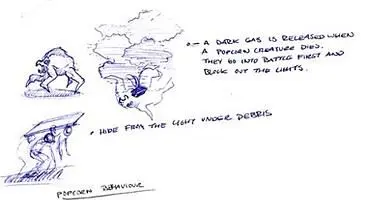 - A DARK GAS IS RELEASED WHEN
A POPCORN CREATURE DIED.
THEY GO INTO BATTLE FIRST AND
BLOCK OUT THE LIGHTS.
• HIDE FROM THE LIGHT UNDER DEBRIS
POPCORN BEHAVIOUR